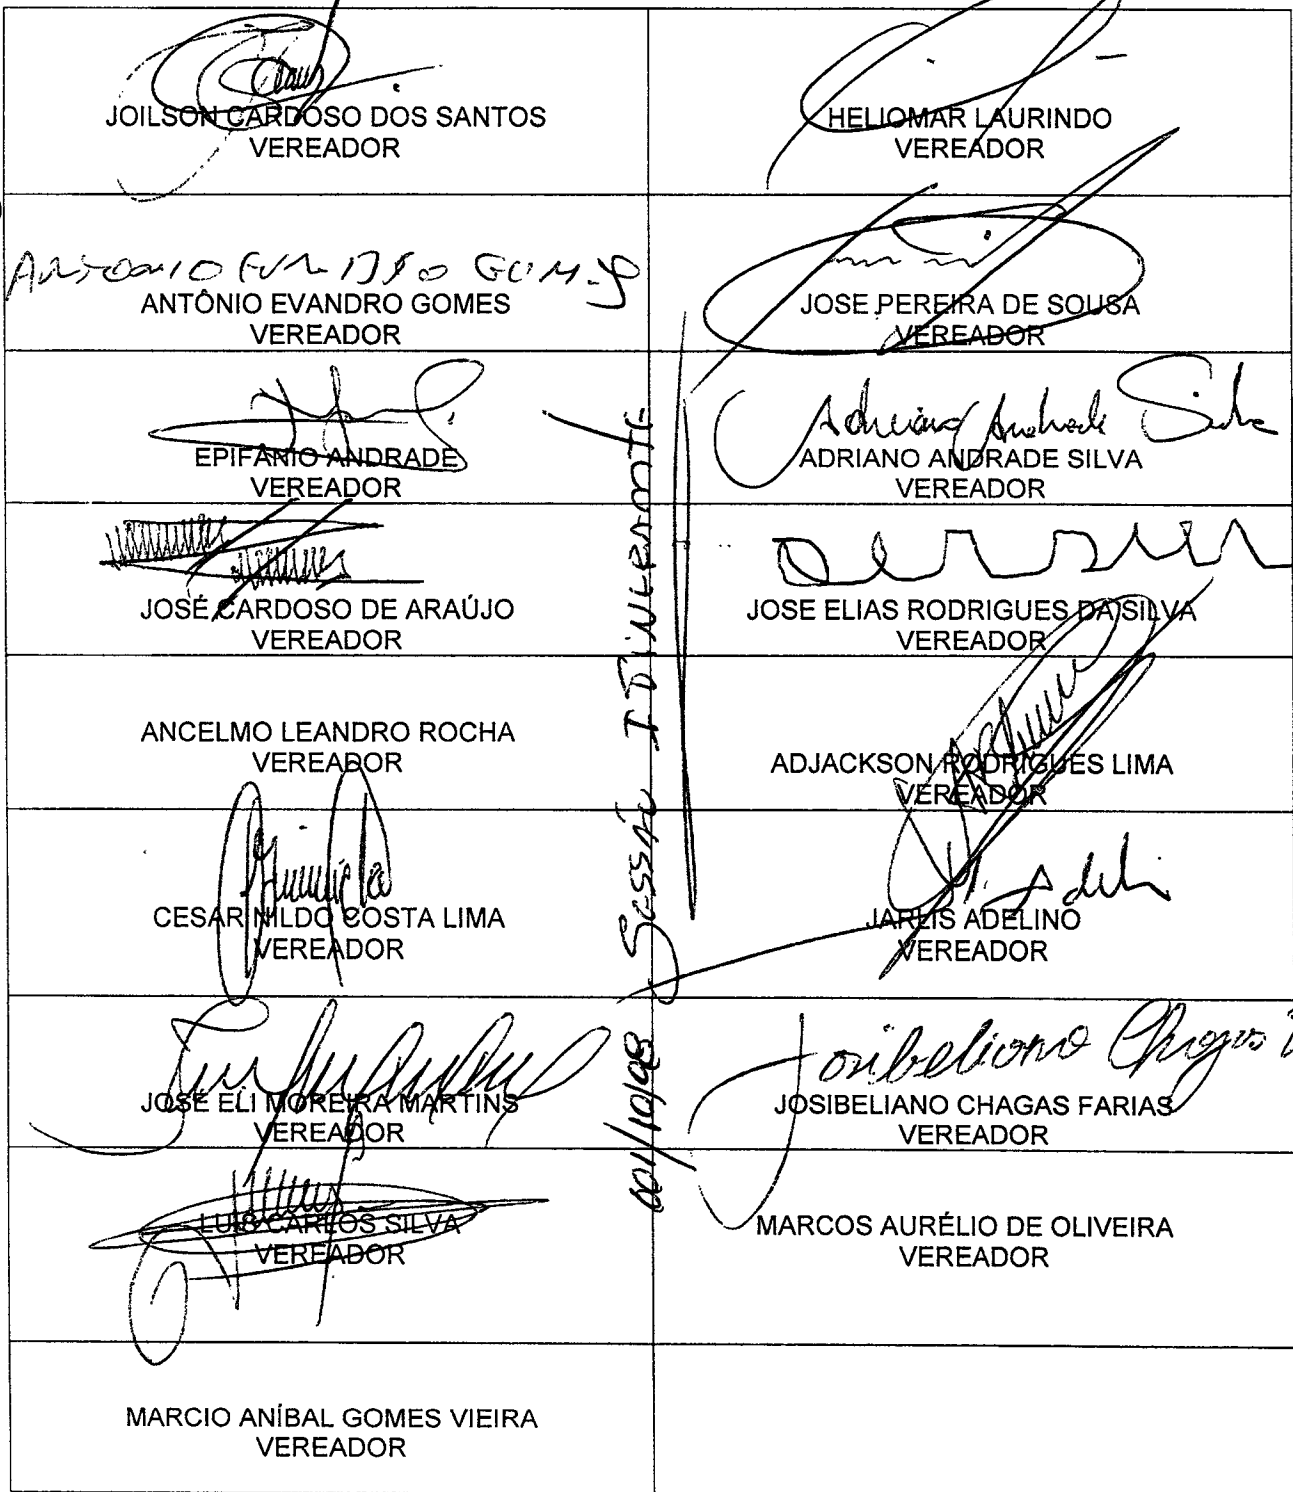 JOILSON CARDOSO DOS SANTOS
VEREADOR
HELIOMAR LAURINDO
VEREADOR
ANTÔNIO EVANDRO GOMES
VEREADOR
JOSE PEREIRA DE SOUSA
VEREADOR
EPIFANIO ANDRADE
VEREADOR
Adriano Andrade Silva
ADRIANO ANDRADE SILVA
VEREADOR
JOSÉ CARDOSO DE ARAÚJO
VEREADOR
JOSE ELIAS RODRIGUES DA SILVA
VEREADOR
ANCELMO LEANDRO ROCHA
VEREADOR
ADJACKSON RODRIGUES LIMA
VEREADOR
CESAR NILDO COSTA LIMA
VEREADOR
JARLIS ADELINO
VEREADOR
JOSÉ ELI MOREIRA MARTINS
VEREADOR
Josibeliano Chagas
JOSIBELIANO CHAGAS FARIAS
VEREADOR
LUIS CARLOS SILVA
VEREADOR
MARCOS AURÉLIO DE OLIVEIRA
VEREADOR
MARCIO ANÍBAL GOMES VIEIRA
VEREADOR
SESSÃO ITINERANTE